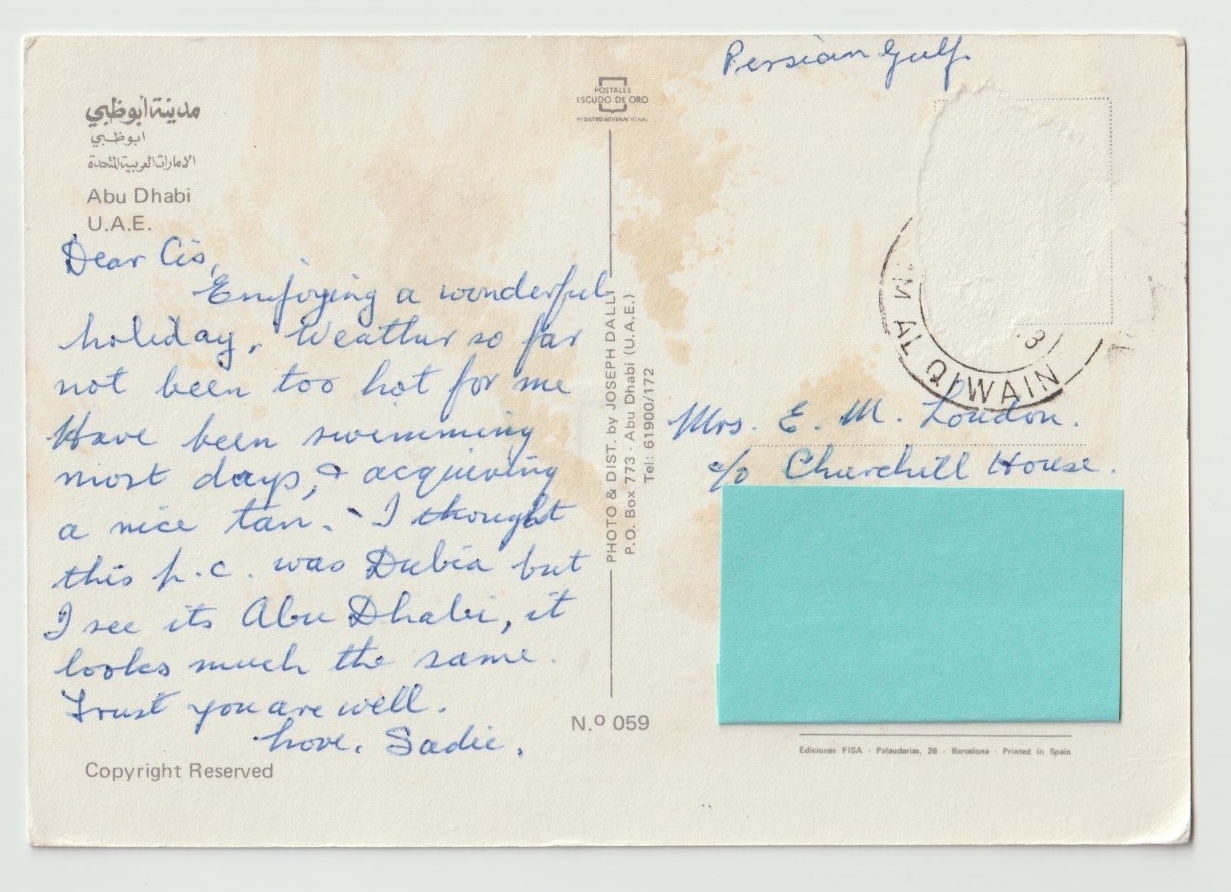 Persian Gulf
مدينة أبوظبي
ابوظبي
الامارات العربية المتحدة
Abu Dhabi
U.A.E.
Dear Cis,
Emjoying a wonderful
holiday, Weather so far
not been too hot for me
Have been swimming
most days, & acquiring
a nice tan. I thought
this p.c. was Dubia but
I see its Abu Dhabi, it
looks much the same.
Trust you are well.
Love, Sadie.
Copyright Reserved
POSTALES
ESCUDO DE ORO
REGISTRO INTERNACIONAL
PHOTO & DIST. by JOSEPH DALLI
P.O. Box 773 - Abu Dhabi (U.A.E.)
Tel: 61900/172
N.º 059
M AL QIWAIN
Mrs. E. M. London.
c/o Churchill House.
Ediciones FISA - Palaudarias, 26 - Barcelona - Printed in Spain